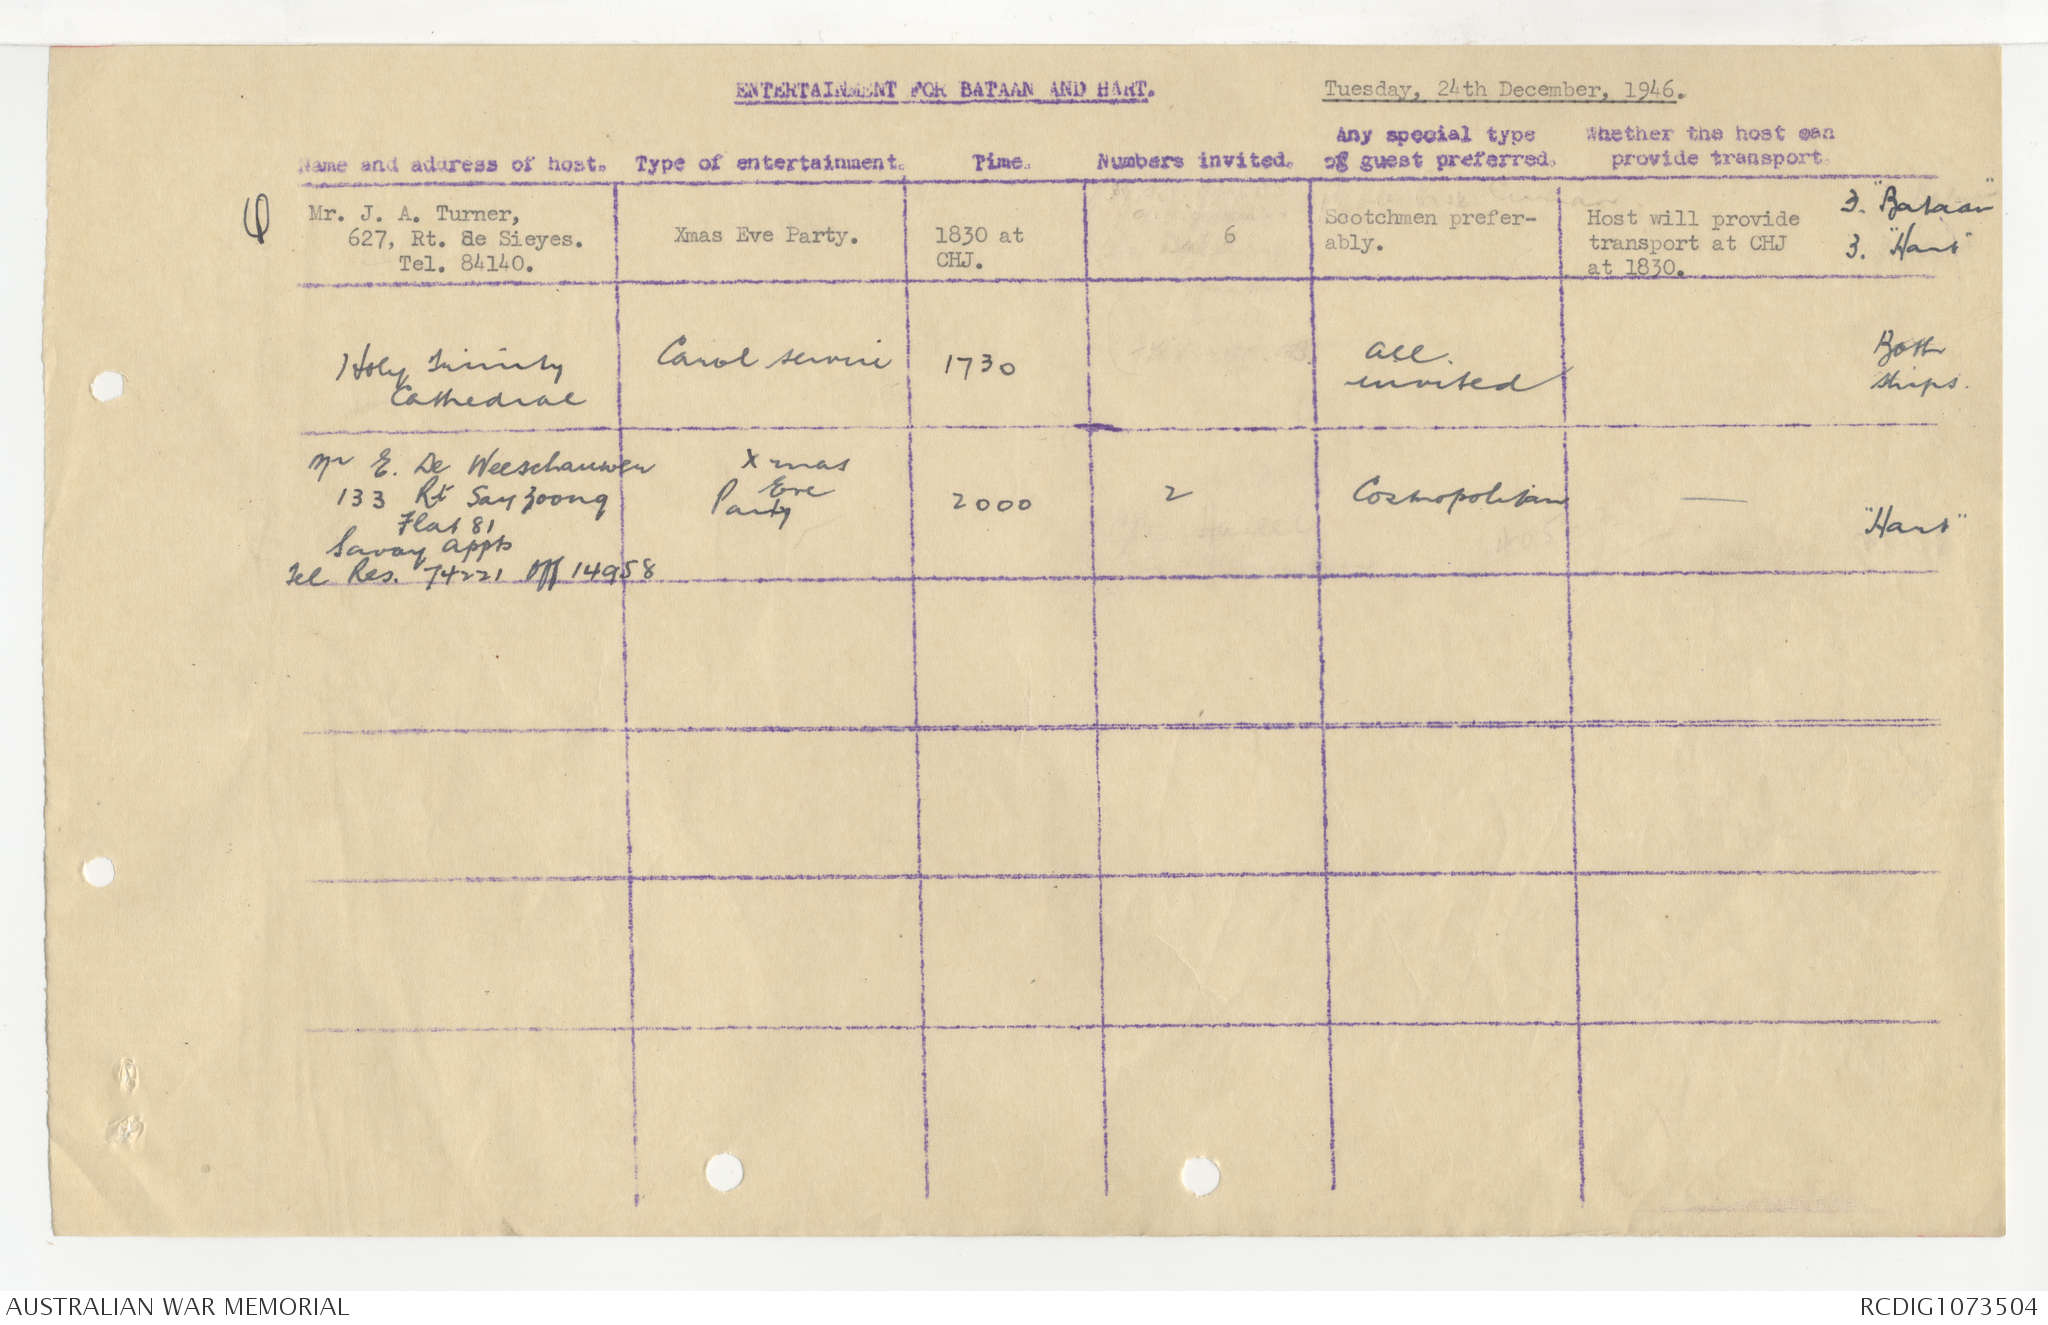 ENTERTAINMENT FOR BATAAN AND HART.
Tuesday, 24th December, 1946.
Name and address of host.
Type of entertainment.
Time.
Numbers invited.
Any special type
of guest preferred.
Whether the host can
provide transport.
Mr. J. A. Turner,
627, Rt. de Sieyes.
Tel. 84140.
Xmas Eve Party.
1830 at
CHJ.
6
Scotchmen prefer-
ably.
Host will provide
transport at CHJ
at 1830.
3. "Bataan"
3. "Hart"
Holy Trinity
Cathedral
Carol service
1730
All
invited
Both
ships.
Mr E. De Weeschauwer
133 Rt Say Zoong
Flat 81
Savoy Appts
Tel Res. 74221 Off 14958
Xmas
Eve
Party
2000
2
Cosmopolitan
—
"Hart"
AUSTRALIAN WAR MEMORIAL
RCDIG1073504